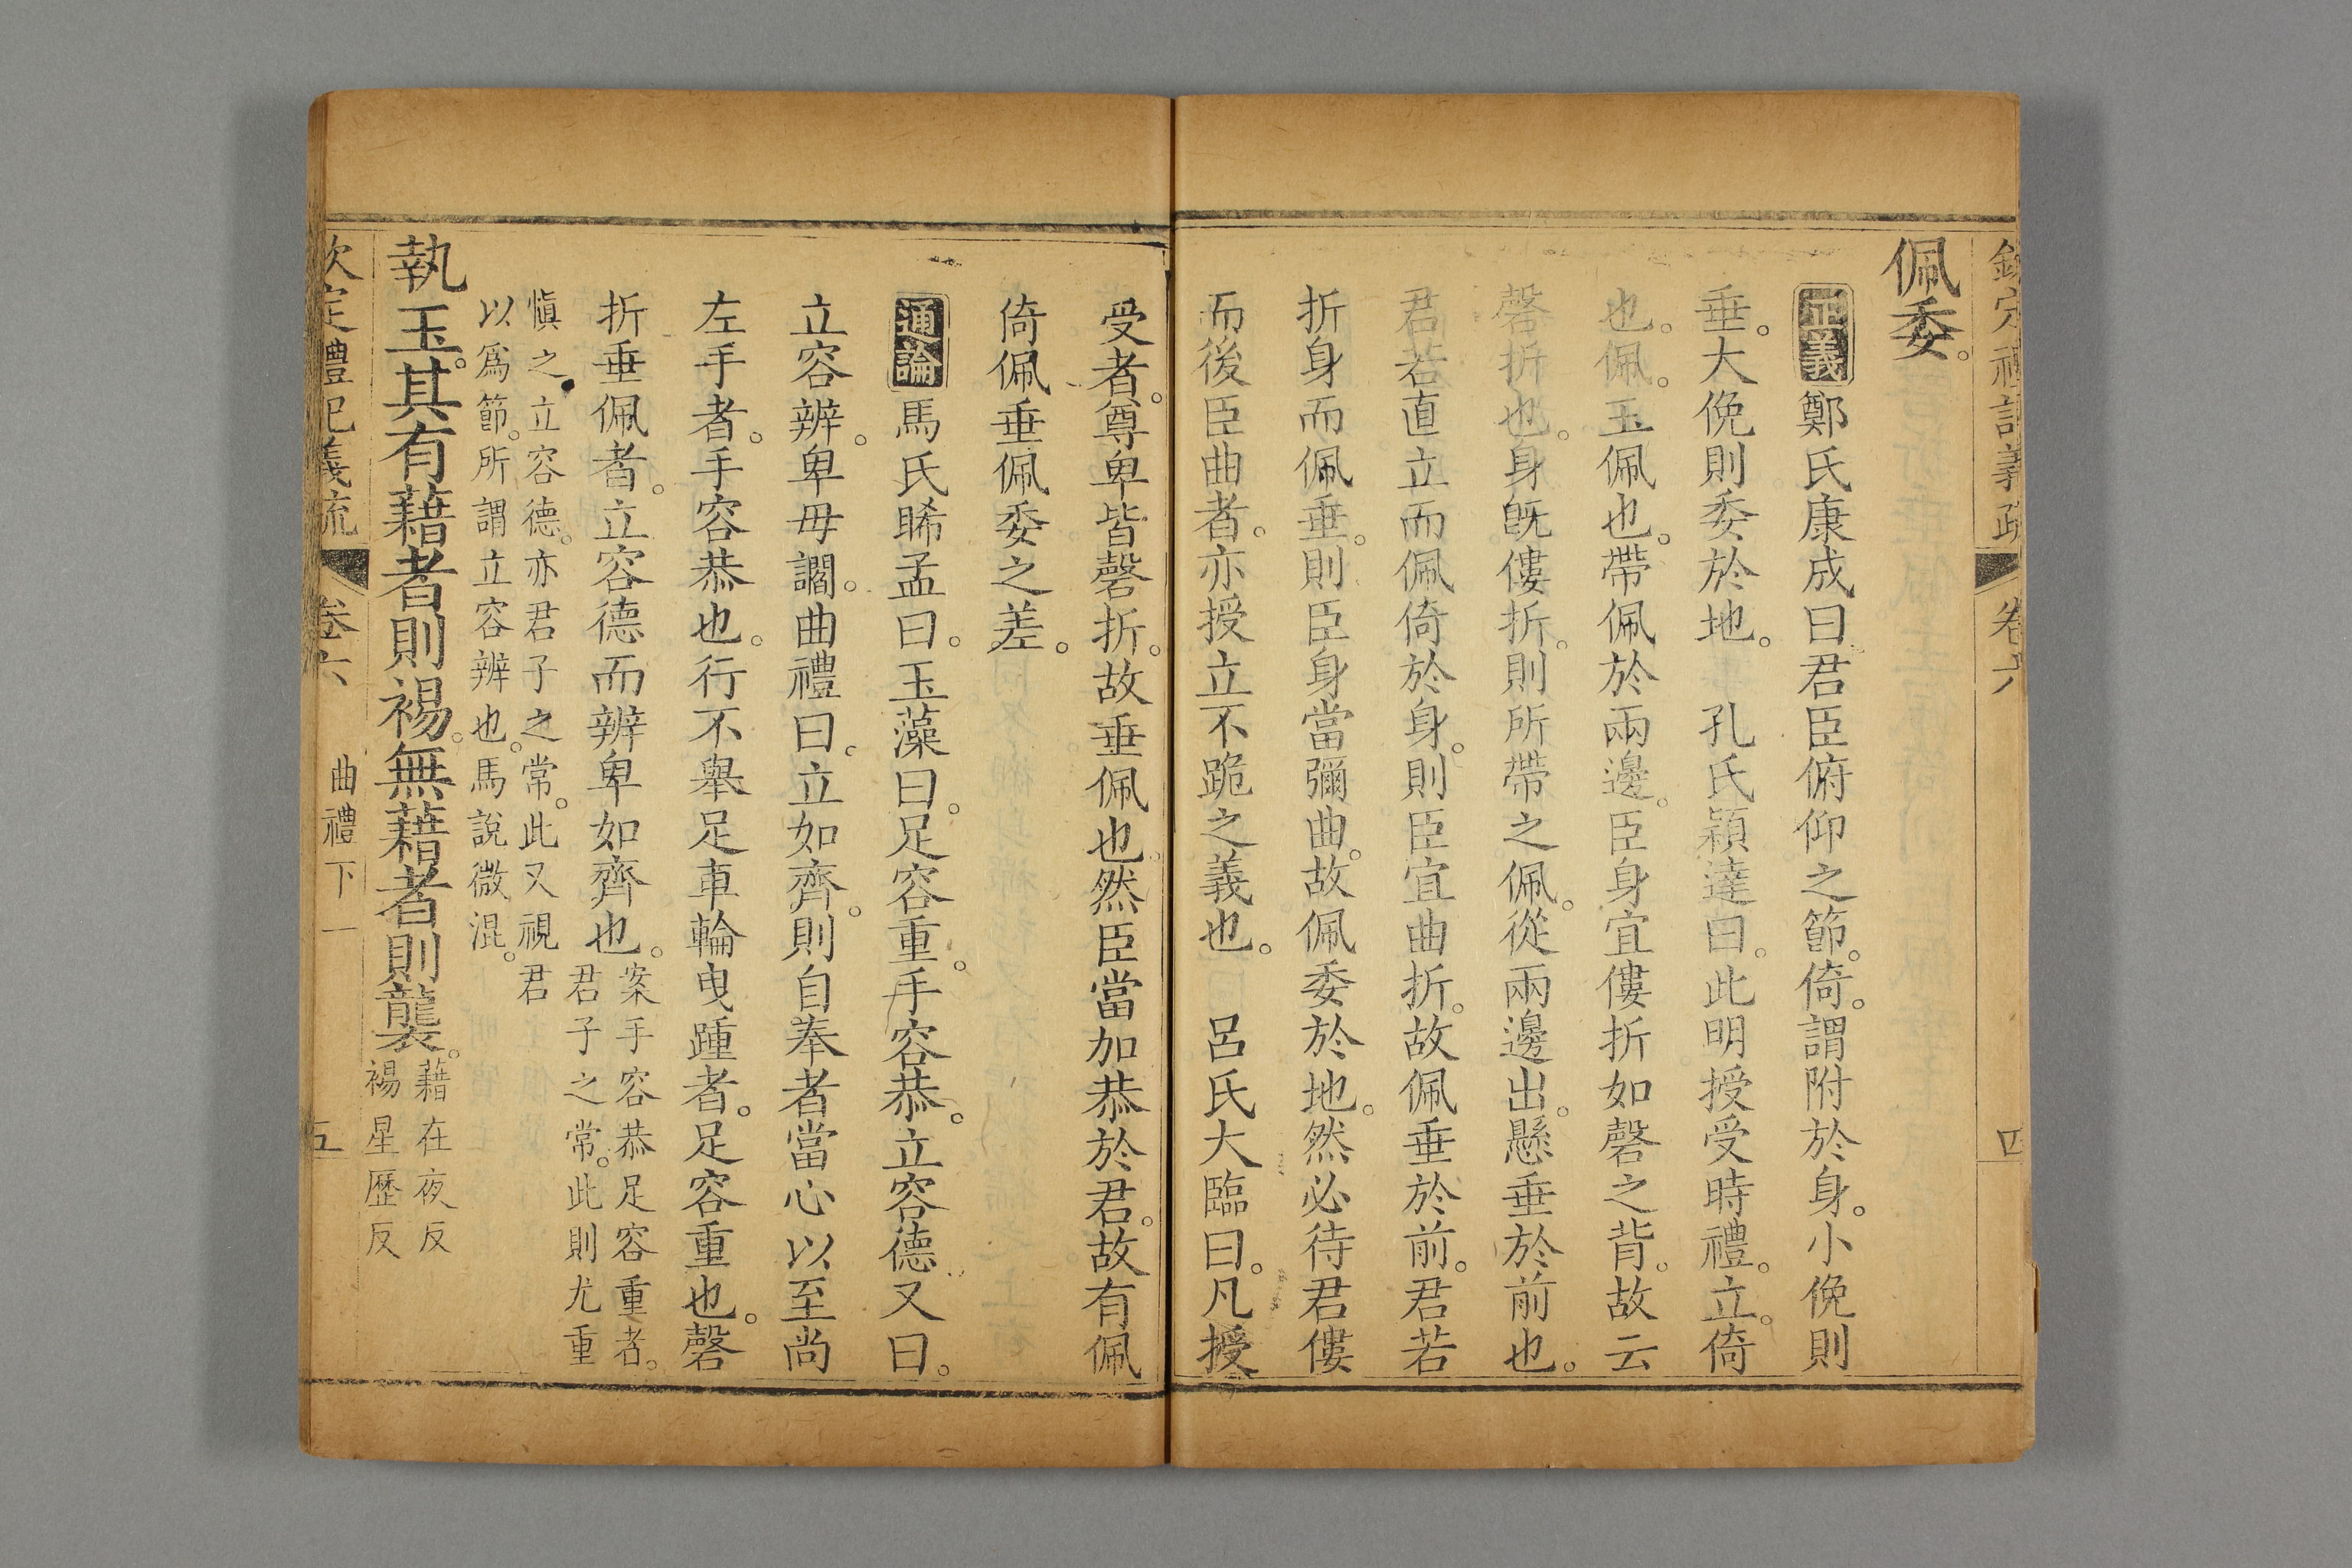 欽定禮記義疏 卷六 四
佩委。
正義 鄭氏康成曰君臣俯仰之節。倚。謂附於身。小俛則
垂。大俛則委於地。 孔氏穎達曰。此明授受時禮。立。倚
也。佩。玉佩也。帶佩於兩邊。臣身宜僂折如磬之背。故云
磬折也。身旣僂折。則所帶之佩。從兩邊出。懸垂於前也。
君若直立而佩倚於身。則臣宜曲折。故佩垂於前。君若
折身而佩垂。則臣身當彌曲。故佩委於地。然必待君僂
而後臣曲者。亦授立不跪之義也。 呂氏大臨曰。凡授
受者。尊卑皆磬折。故垂佩也。然臣當加恭於君。故有佩
倚佩垂佩委之差。
通論 馬氏晞孟曰。玉藻曰。足容重。手容恭。立容德又曰。
立容辨。卑毋讇。曲禮曰。立如齊。則自奉者當心以至尚
左手者。手容恭也。行不舉足車輪曳踵者。足容重也。磬
折垂佩者。立容德而辨卑如齊也。案手容恭足容重者。
君子之常。此則尤重
愼之立容德。亦君子之常。此又視君
以爲節。所謂立容辨也。馬說微混。
執玉。其有藉者則裼。無藉者則襲。藉在夜反
裼星歷反
欽定禮記義疏 卷六 曲禮下一 五